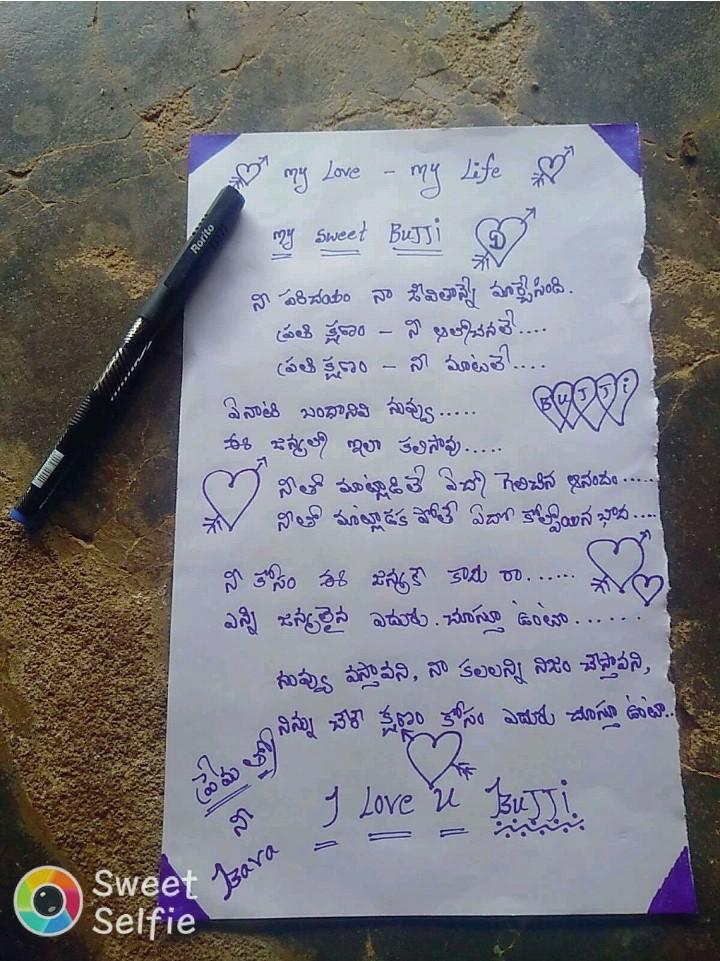 my Love - my Life
my sweet BUJJi
D
Rorito
నీ పరిచయం నా జీవితాన్నే మార్చేసింది.
ప్రతి క్షణం - నీ ఆలోచనలే....
ప్రతి క్షణం - నీ మాటలే....
BUJJi
ఏనాటి బంధానివి నువ్వు.....
ఈ జన్మలో ఇలా కలిసావు.....
నీతో మాట్లాడితే ఏదో గెలిచిన ఆనందం.....
నీతో మాట్లాడక పోతే ఏదో కోల్పోయిన బాధ....
నీ కోసం ఈ జన్మకే కాదు రా......
ఎన్ని జన్మలైన ఎదురు చూస్తూ ఉంటా.......
నువ్వు వస్తావని, నా కలలన్ని నిజం చేస్తావని,
నిన్ను చేరే క్షణం కోసం ఎదురు చూస్తూ ఉంటా..
I Love U BUJJi
ప్రేమ తో
నీ
Bava
Sweet
Selfie